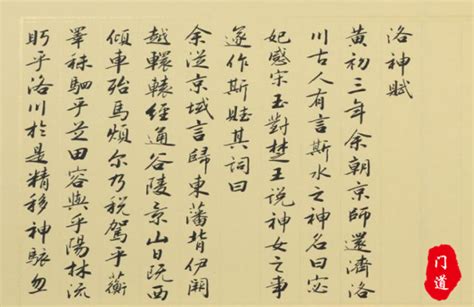 洛神賦
黄初三年余朝京師還濟洛
川古人有言斯水之神名曰宓
妃感宋玉對楚王說神女之事
遂作斯賦其詞曰
余從京域言歸東藩背伊闕
越轘轅經通谷陵景山日既西
傾車殆馬煩尔乃税駕乎蘅
皋秣駟乎芝田容與乎陽林流
眄乎洛川於是精移神駭忽
门道